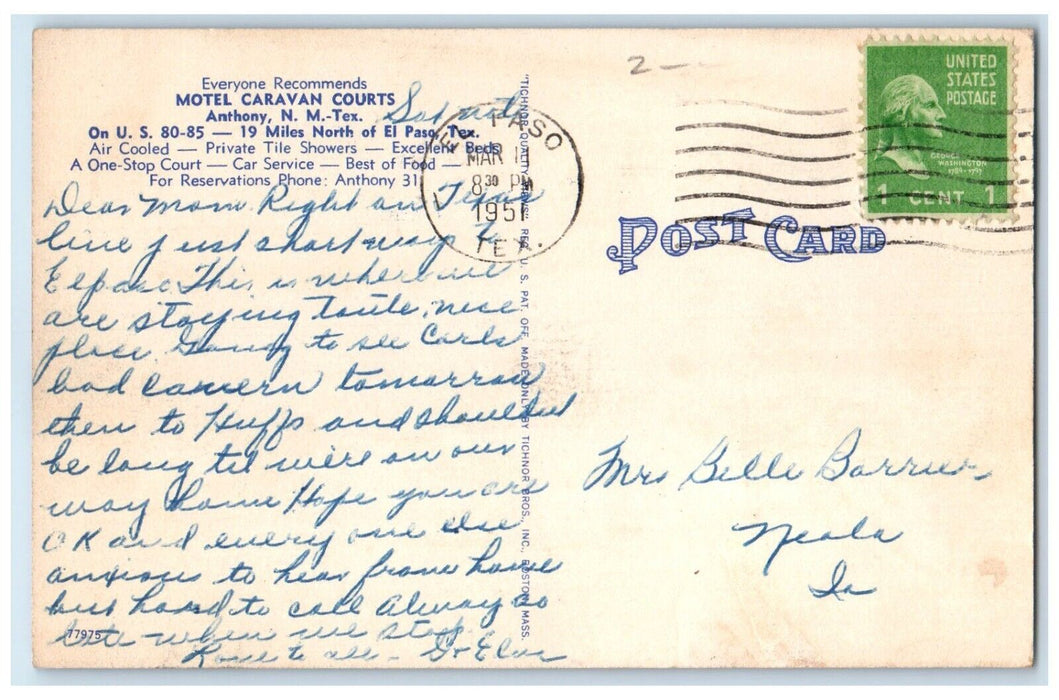 Everyone Recommends
MOTEL CARAVAN COURTS
Anthony, N. M.-Tex.
On U. S. 80-85 — 19 Miles North of El Paso, Tex.
Air Cooled — Private Tile Showers — Excellent Beds
A One-Stop Court — Car Service — Best of Food —
For Reservations Phone: Anthony 31
Sat nite
Dear Mom Right on Texas
line just short way to
Elpaso This is where we
are staying tonite, nice
place. Going to see Carls
bad cavern tomorrow
then to Huffs and shouldnt
be long til we're on our
way home Hope you are
OK and every one else
anxious to hear from home
but hard to call Alway so
late when we stop
Love to all -
77975
"TICHNOR QUALITY VIEWS" REG. U. S. PAT. OFF. MADE ONLY BY TICHNOR BROS., INC., BOSTON, MASS.
EL PASO
MAR 1
8 30 PM
1951
TEX.
2-
UNITED
STATES
POSTAGE
GEORGE
WASHINGTON
1789-1797
1 CENT 1
POST CARD
Mrs Belle Barrier
Neola
Ia